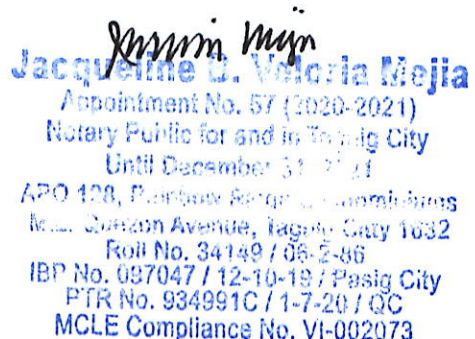 Jacqueline D. Valoria Mejia
Appointment No. 57 (2020-2021)
Notary Public for and in Taguig City
Until December 31,
APO 128, Rainbow
M.L. Quezon Avenue, Taguig City 1632
Roll No. 34149 / 06-2-86
IBP No. 087047 / 12-10-19 / Pasig City
PTR No. 934991C / 1-7-20 / QC
MCLE Compliance No. VI-002073